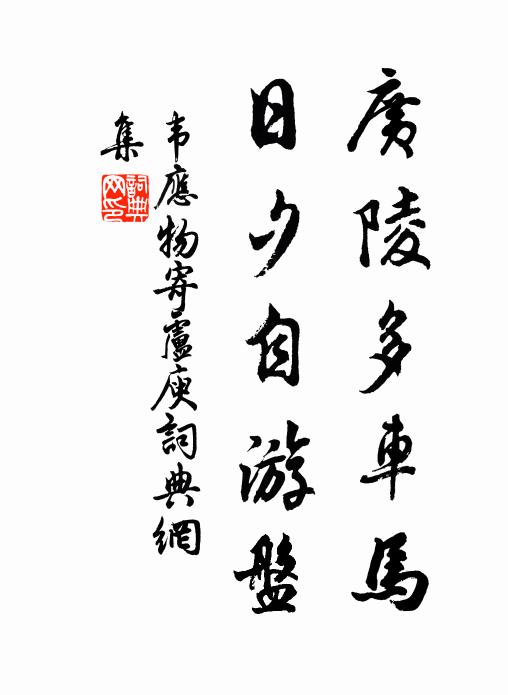 廣陵多車馬
日夕自游盤
韦應物寄盧庾詞典網
集
詞典
网印